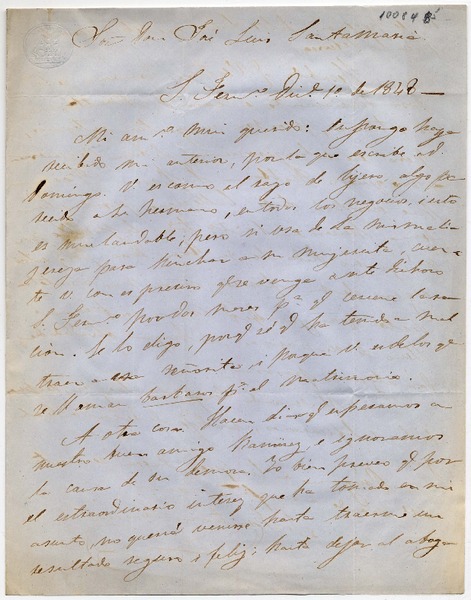 10084 8º
Sor Don José Luis Santamaria
S. Fern.º Dic.e 1º de 1848
Mi am.º mui querido: Supongo haya
recibido mi anterior, por la que escribo al
Domingo. V. es como el rayo de ligero, algo pa
recido a su hermano, en todos los negocios, esto
es mui laudable; pero si usa de la misma li
jereza para hinchar a su mujersita, cuen
te V. con es preciso q.e se venga a nte
S. Fern.º por dos meses p.a q.e
cion. Se lo digo, porq.e sé q.e ha tenido mal
traer a esa señorita i porque V. es de los q.e
se llaman barbaros p.a el matrimonio.
A otra cosa. Hacen dias q.e esperamos a
nuestro buen amigo Ramirez, e ignoramos
la causa de su demora. Yo bien preveo q.e por
el estraordinario interez que ha tomado en mi
asunto, no querrá venirse hasta traerme un
resultado seguro i feliz; hasta dejar al aboga